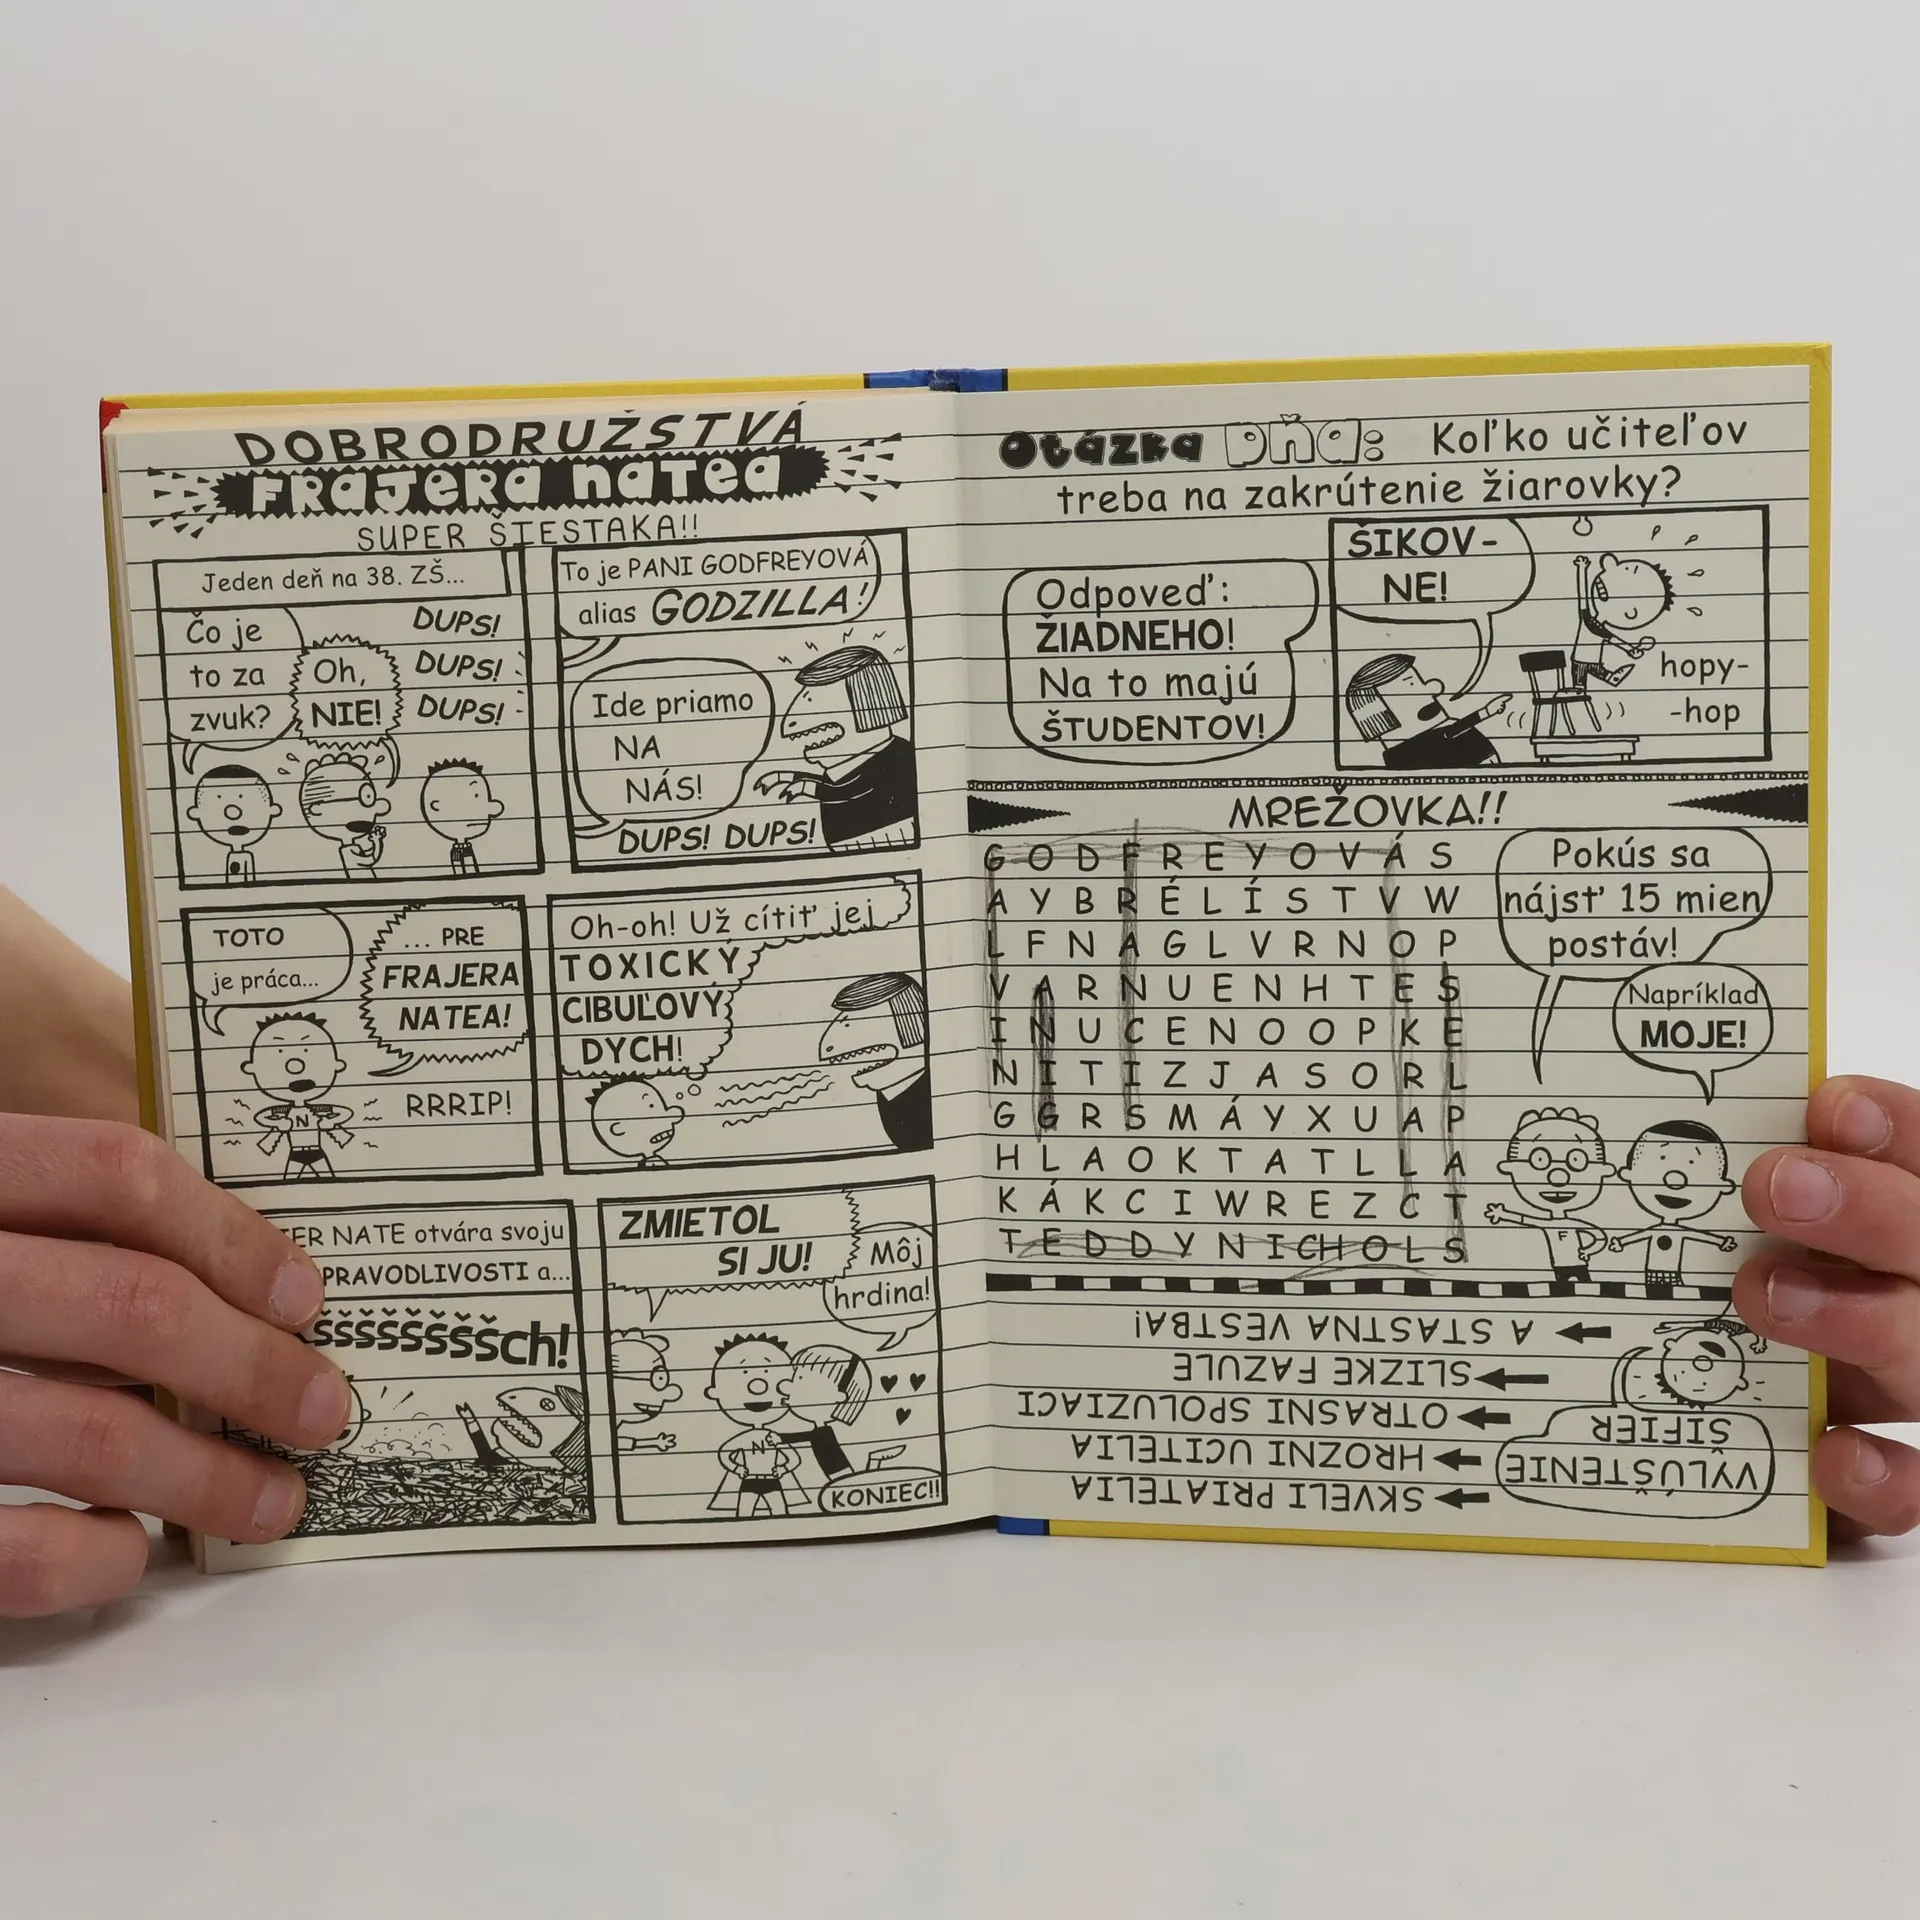 DOBRODRUŽSTVÁ
FRAJERA NATEA
SUPER ŠIESTAKA!!
Jeden deň na 38. ZŠ...
Čo je
to za
zvuk?
Oh,
NIE!
DUPS!
DUPS!
DUPS!
To je PANI GODFREYOVÁ
alias GODZILLA!
Ide priamo
NA
NÁS!
DUPS! DUPS!
TOTO
je práca...
... PRE
FRAJERA
NATEA!
N
RRRIP!
Oh-oh! Už cítiť jej
TOXICKÝ
CIBUĽOVÝ
DYCH!
NATE otvára svoju
PRAVODLIVOSTI a...
ŠŠŠŠŠŠŠŠch!
ZMIETOL
SI JU!
Môj
hrdina!
N
KONIEC!!
Otázka DŇA: Koľko učiteľov
treba na zakrútenie žiarovky?
Odpoveď:
ŽIADNEHO!
Na to majú
ŠTUDENTOV!
ŠIKOV-
NE!
hopy-
-hop
MREŽOVKA!!
G O D F R E Y O V Á S
A Y B R É L Í S T V W
L F N A G L V R N O P
V A R N U E N H T E S
I N U C E N O O P K E
N I T I Z J A S O R L
G G R S M Á Y X U A P
H L A O K T A T L L A
K Á K C I W R E Z C T
T E D D Y N I CH O L S
Pokús sa
nájsť 15 mien
postáv!
Napríklad
MOJE!
F
VYLÚŠTENIE
ŠIFIER
SKVELI PRIATELIA
HROZNI UCITELIA
OTRASNI SPOLUZIACI
SLIZKE FAZULE
A STASTNA VESTBA!